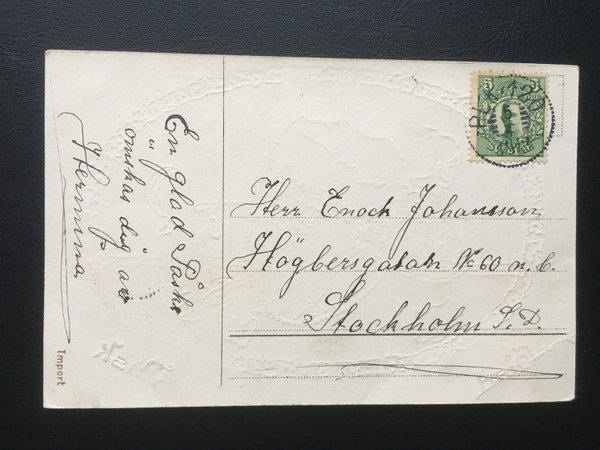 En glad Påsk
önskas dig av
Hermina.
Herr Enoch Johansson
Högbersgatan No 60 n. b.
Stockholm S.D.
5
Import